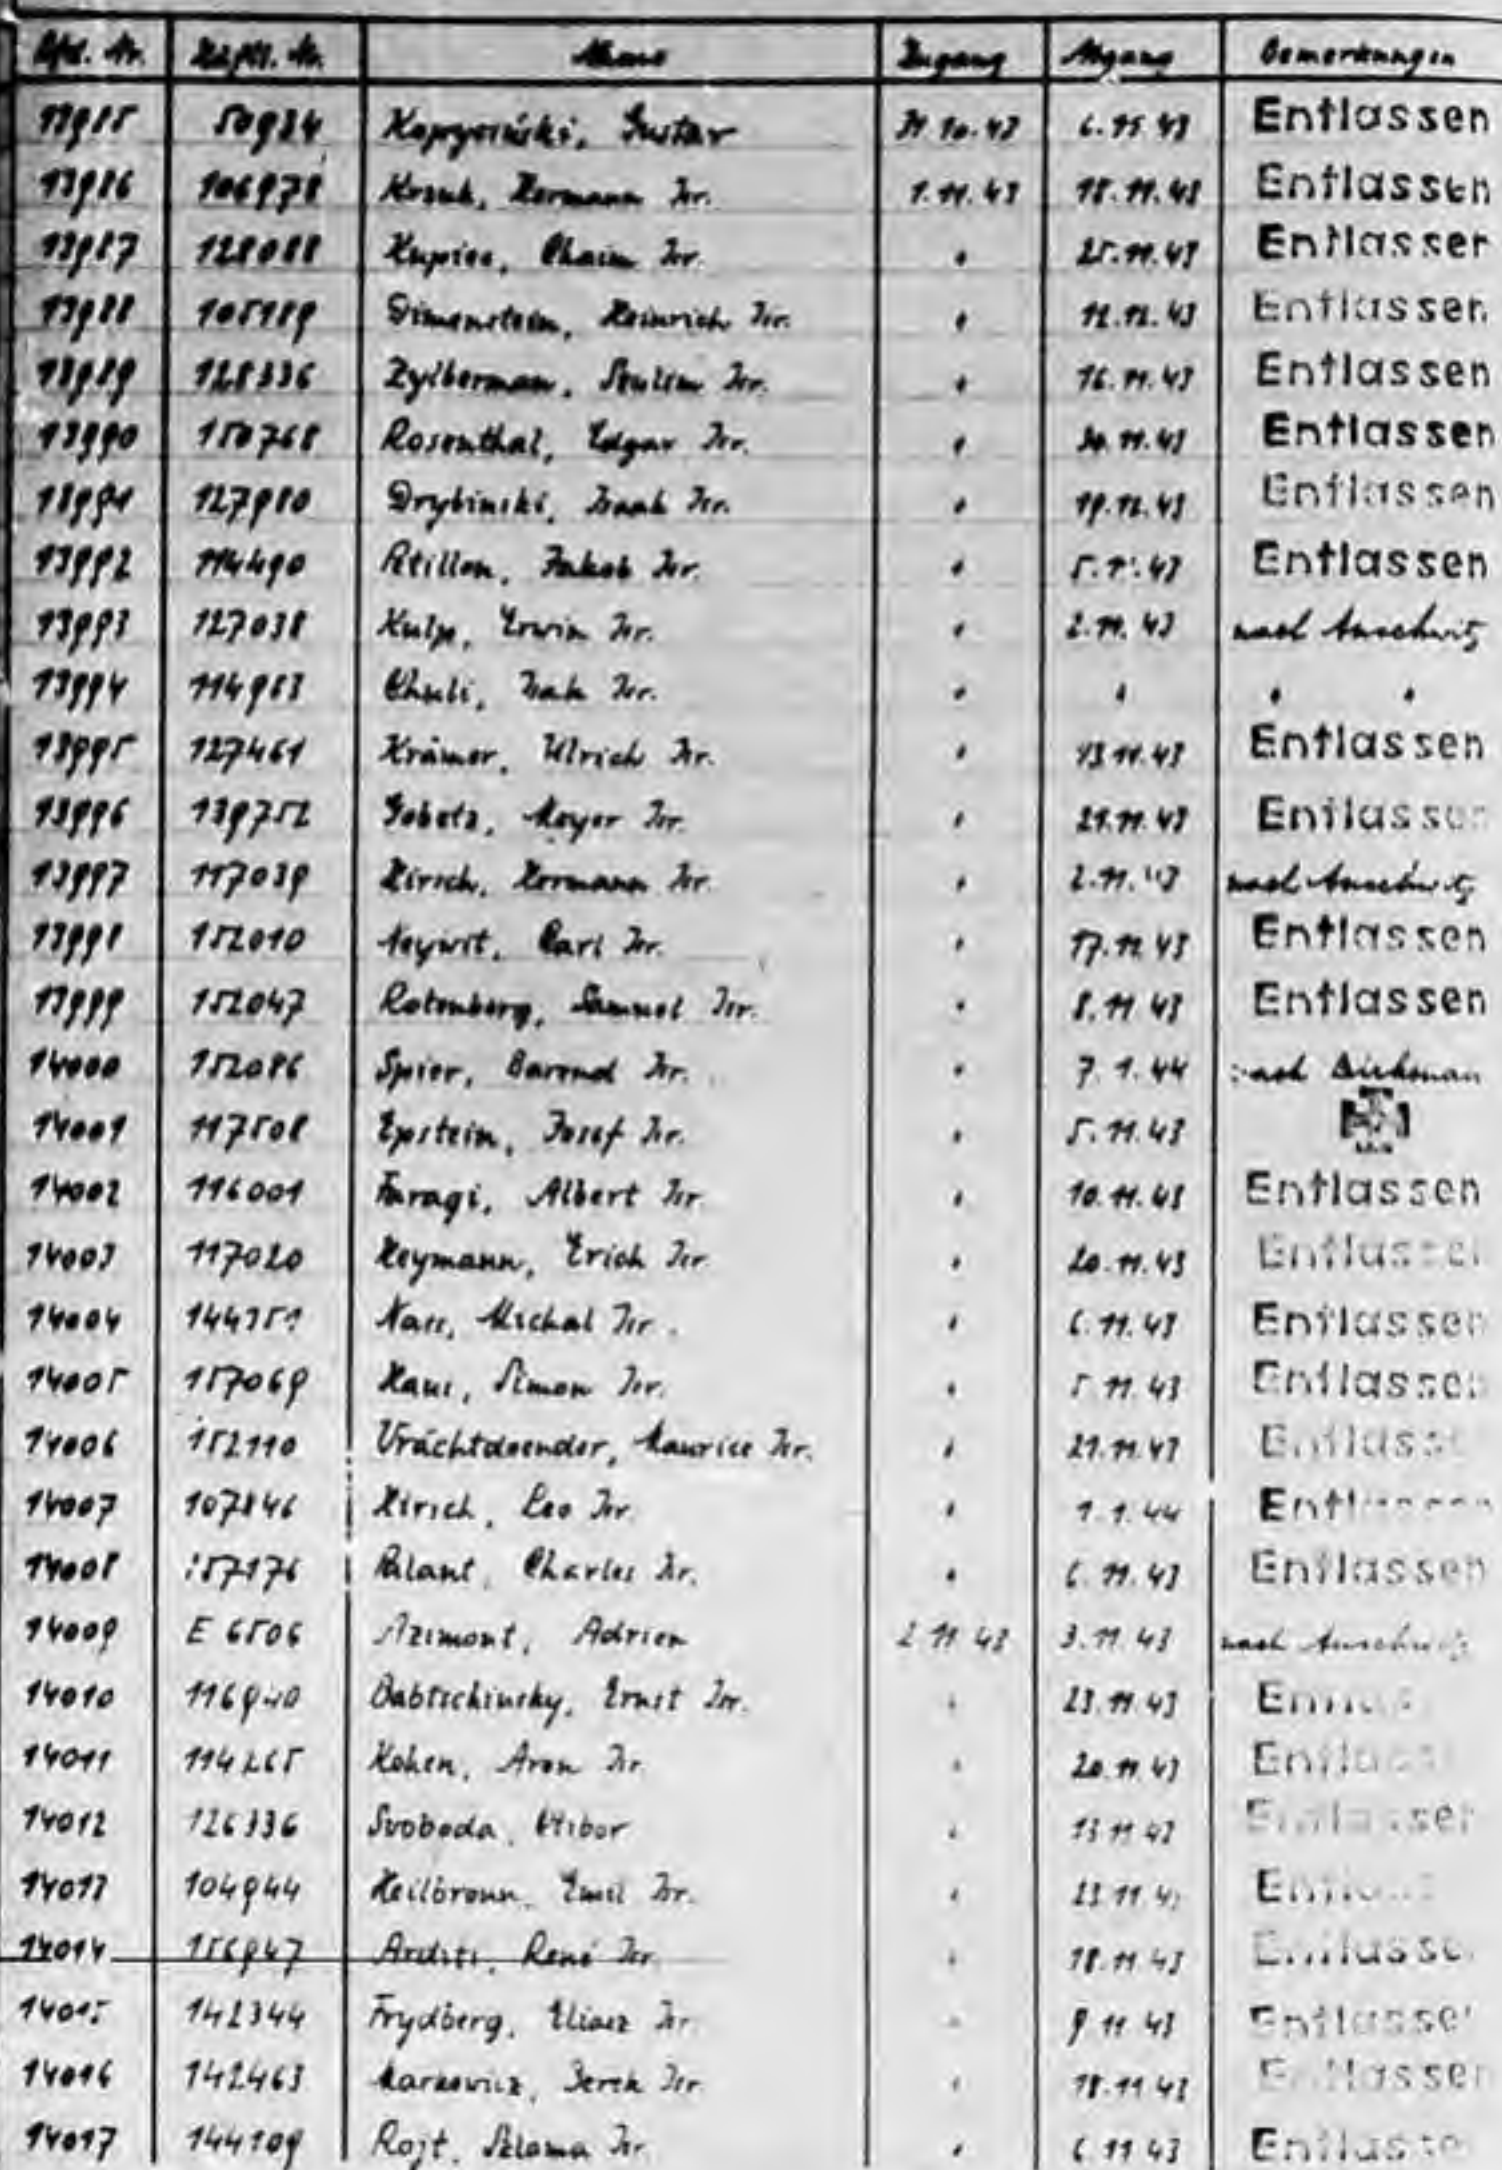 Lfd. Nr. Häftl. Nr. Name Zugang Abgang Bemerkungen
13985 50924 Kopyciński, Gustav 31.10.43 6.11.43 Entlassen
13986 106978 Hermann Isr. 1.11.43 18.11.43 Entlassen
13987 128088 Kupiec, Chaim Isr. " 25.11.43 Entlassen
13988 105189 Dimenstein, Heinrich Isr. " 12.12.43 Entlassen
13989 128336 Zylberman, Szulim Isr. " 16.11.43 Entlassen
13990 150768 Rosenthal, Edgar Isr. " 30.11.43 Entlassen
13991 127980 Drybinski, Isaak Isr. " 19.12.43 Entlassen
13992 114490 Jakob Isr. " Entlassen
13993 127038 Kulp, Erwin Isr. " 2.11.43 nach Auschwitz
13994 114983 Isak Isr. " " " "
13995 127461 Krämer, Ulrich Isr. " 13.11.43 Entlassen
13996 139752 Meyer Isr. " 21.11.43 Entlassen
13997 117039 Hirsch, Hermann Isr. " 2.11.43 nach Auschwitz
13998 152010 Carl Isr. " Entlassen
13999 152047 Rotenberg, Samuel Isr. " 8.11.43 Entlassen
14000 152086 Spier, Barend Isr. " 7.1.44 nach Birkenau
14001 117508 Epstein, Josef Isr. " 5.11.43
14002 116001 Faragi, Albert Isr. " 10.11.43 Entlassen
14003 117020 Heymann, Erich Isr. " 20.11.43 Entlassen
14004 144351 Michal Isr. " 6.11.43 Entlassen
14005 157069 Simon Isr. " 5.11.43 Entlassen
14006 152110 Vrachtdoender, Maurice Isr. " 21.11.43 Entlassen
14007 107846 Hirsch, Leo Isr. " 1.1.44 Entlassen
14008 157176 Palant, Charles Isr. " 6.11.43 Entlassen
14009 E 6506 Azimont, Adrien 2.11.43 3.11.43 nach Auschwitz
14010 116940 Babtschinsky, Ernst Isr. " 23.11.43
14011 114265 Kohen, Aron Isr. " 20.11.43 Entlassen
14012 126336 Svoboda, Ctibor " 13.11.43 Entlassen
14013 104944 Heilbronn, Emil Isr. " 23.11.43
14014 156947 Arditi, René Isr. " 18.11.43 Entlassen
14015 142344 Frydberg, Eliasz Isr. " 9.11.43 Entlassen
14016 142463 Markowicz, Berek Isr. " 18.11.43 Entlassen
14017 144109 Rojt, Szlama Isr. " 6.11.43 Entlassen